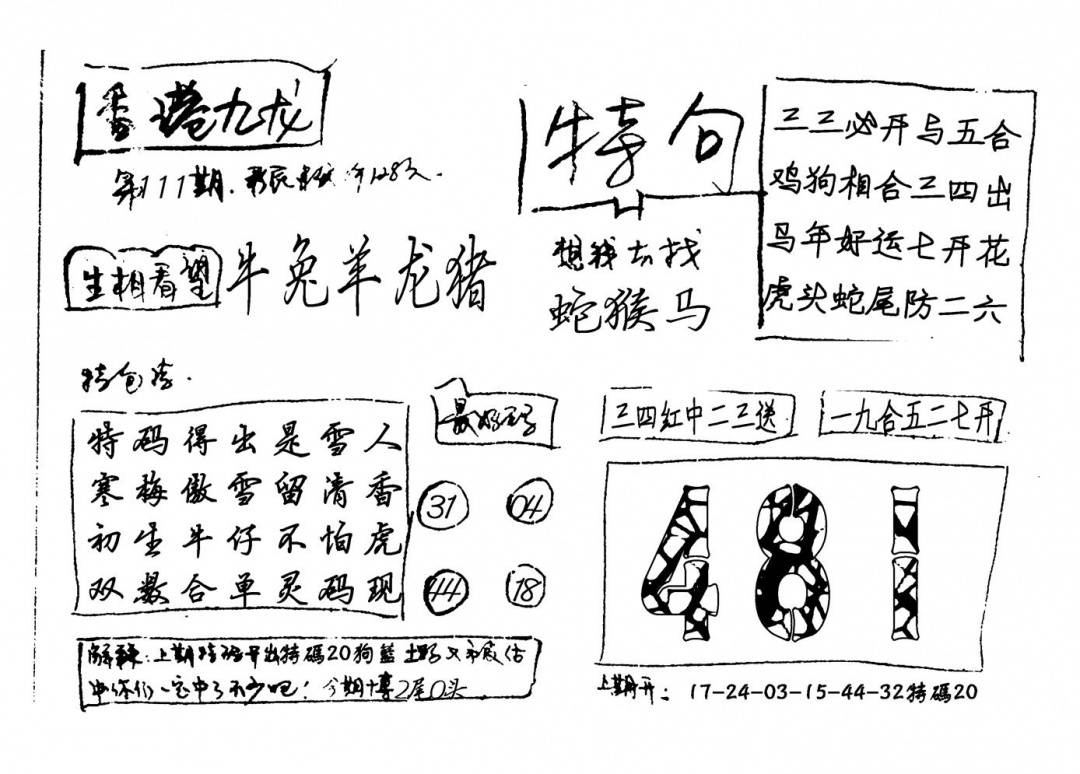 香港九龙
第11期.
生相看望
牛兔羊龙猪
特句
想我去找
蛇猴马
三三必开与五合
鸡狗相合三四出
马年好运七开花
虎头蛇尾防二六
特码得出是雪人
寒梅傲雪留清香
初生牛仔不怕虎
双数合单灵码现
31 04
44 18
三四红中二三送
一九合五二七开
481
上期 开出特碼20狗藍
中你们一定中了不少吧! 今期博2尾0头
上期开: 17-24-03-15-44-32特碼20